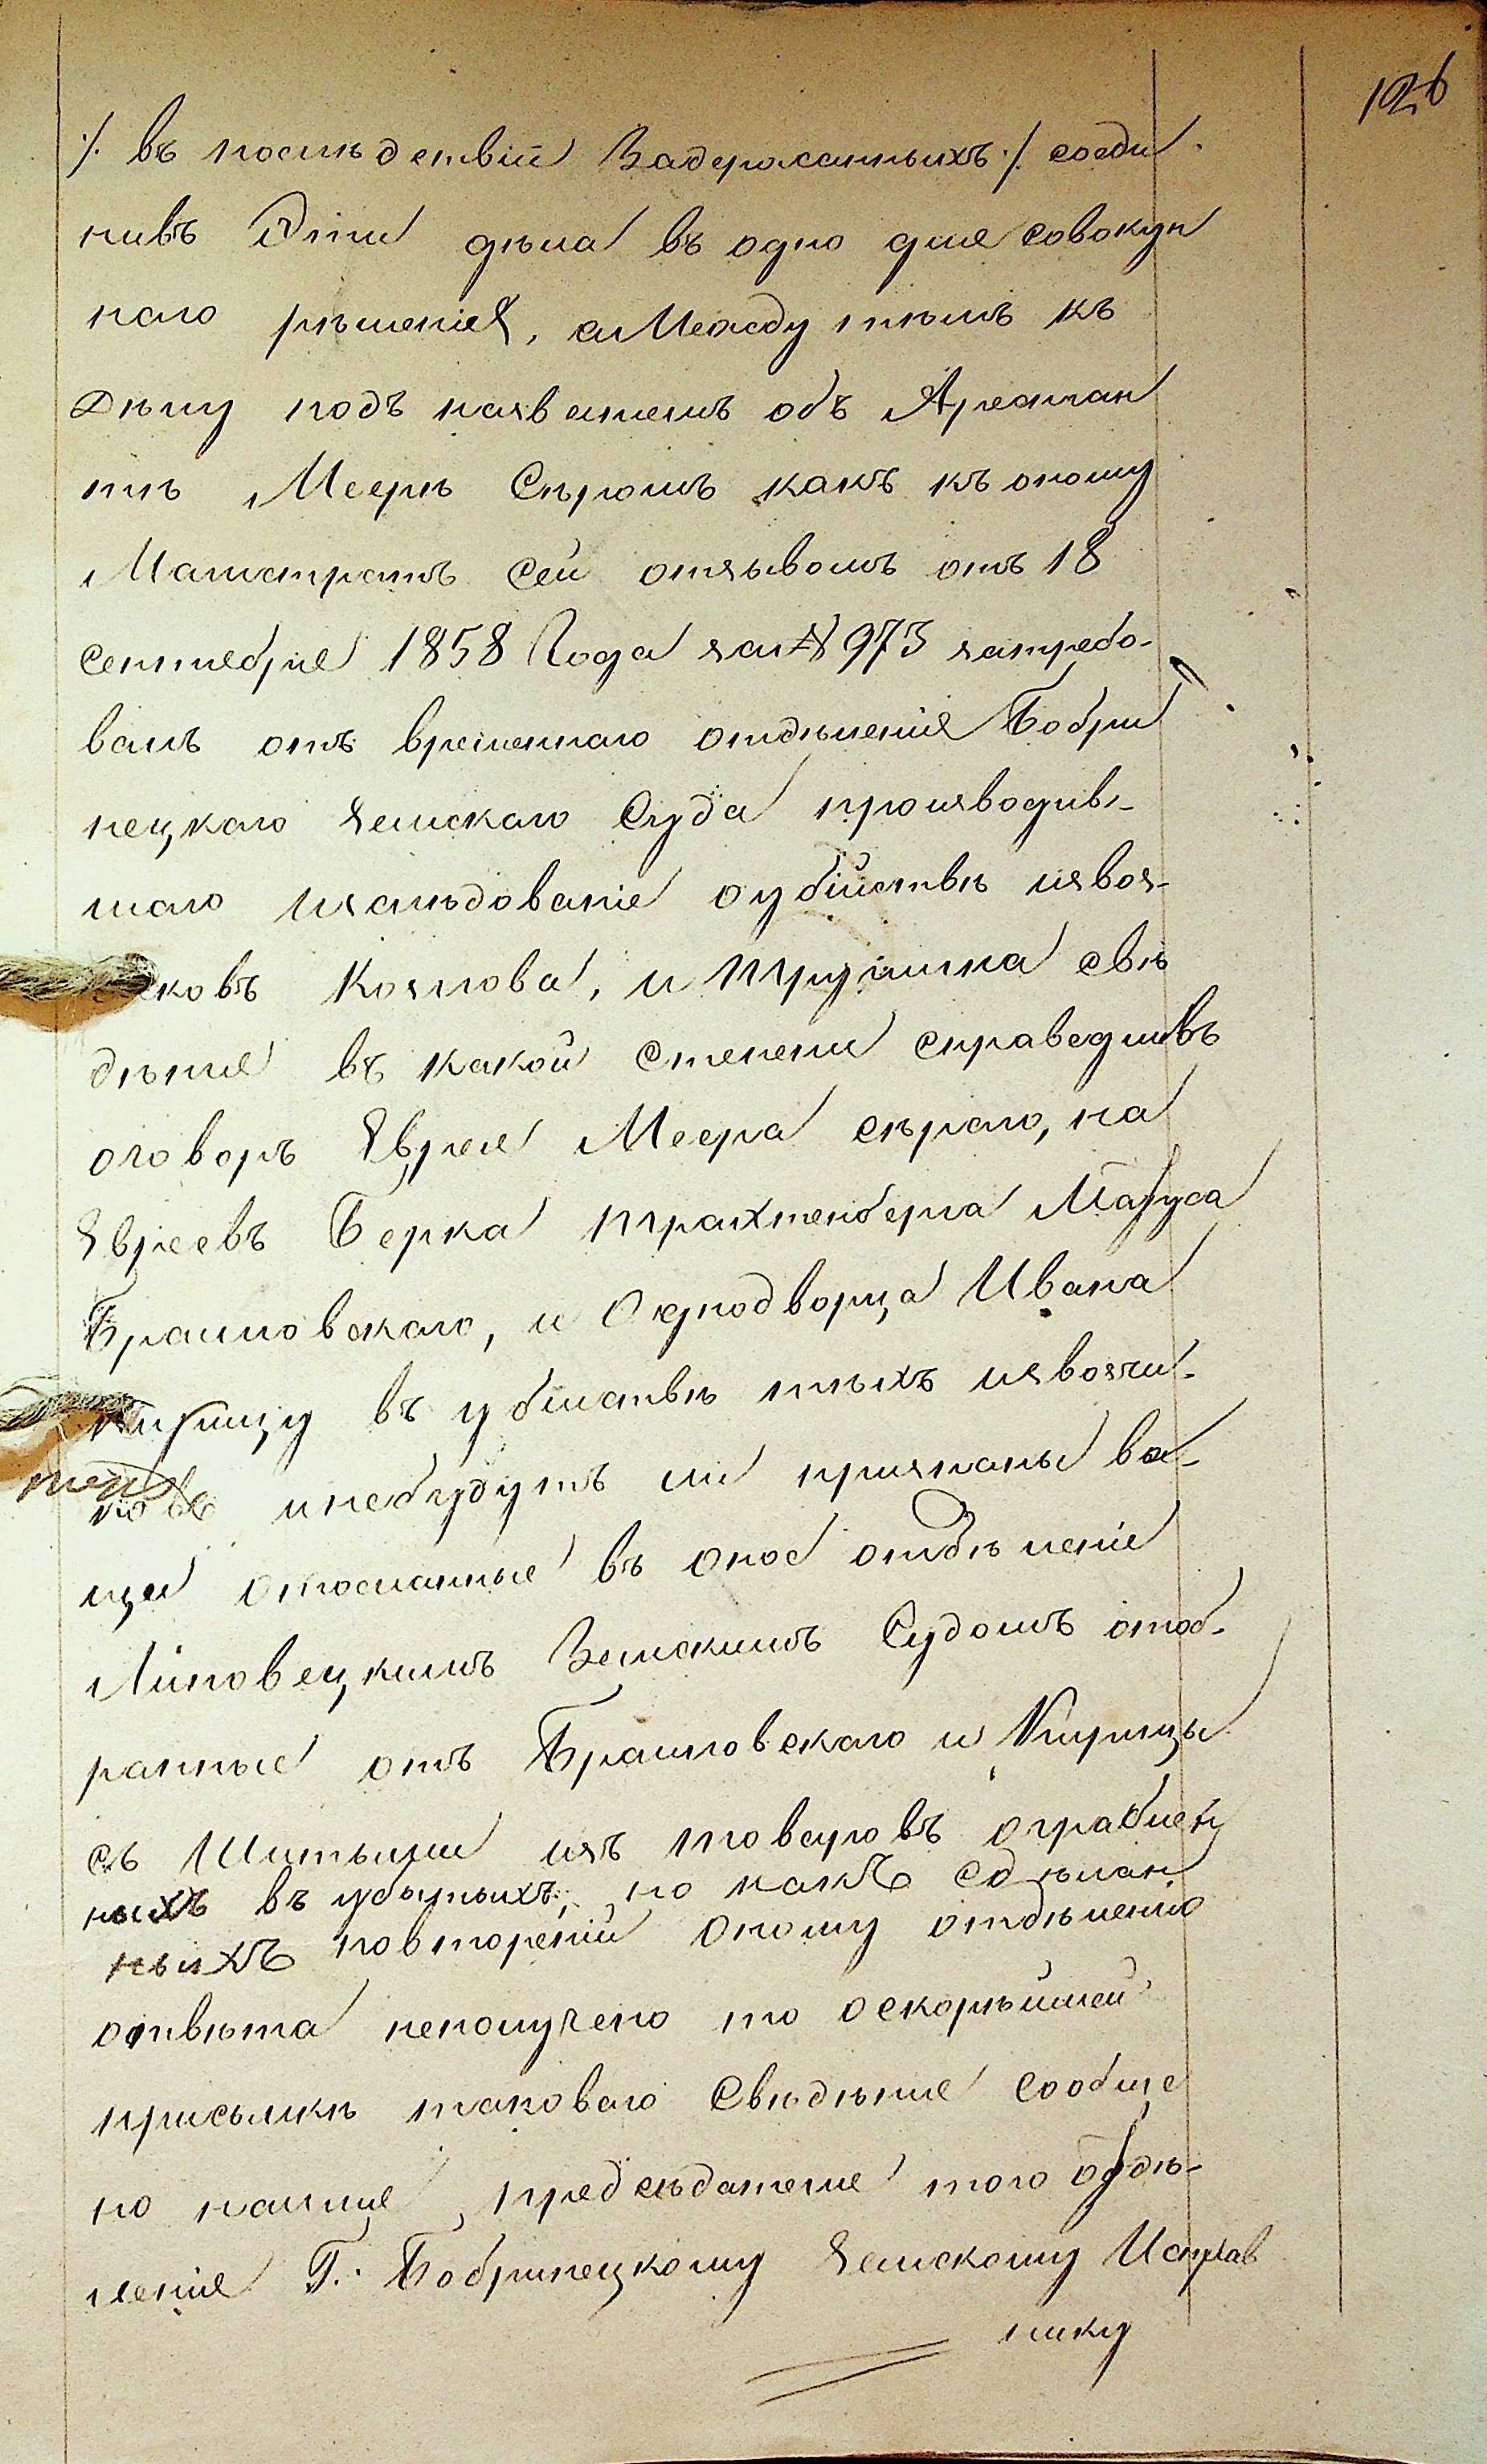 126
·/. въ послѣдствіи Задержанныхъ ·/. соеди-
нивъ Эти дѣла въ одно для совокуп
наго рѣшенія, а Между тѣмъ къ
дѣлу подъ названіемъ объ Арестан
тѣ Меерѣ Сѣромъ какъ къ оному
Магистратъ сей отзывомъ отъ 18
сентября 1858 Года за № 973 затребо-
валъ отъ временнаго отдѣленія Бобри
нецкаго Земскаго Суда производив-
шаго изслѣдованіе о убійствѣ извоз-
чиковъ Козлова, и свѣ
дѣніе въ какой степени справедливъ
оговоръ Еврея Меера сѣраго, на
Евреевъ Берка Трахтенберга Матуса
Браиловскаго, и Однодворца Ивана
Кирицу въ убіиствѣ тѣхъ извозчи-
ковъ и небудутъ ли признаны ве-
щи отосланные въ оное отдѣленіе
Липовецкимъ Земскимъ Судомъ отоб-
ранные отъ Браиловскаго и Кирицы
съ Шитыми изъ товаровъ ограблен
ныхъ въ убытыхъ, но какъ сдѣлан
ныхъ повтореній оному отдѣленію
отвѣта неполучено то о скорѣйшей
присылкѣ таковаго Свѣдѣнія сообще
но нынѣ предсѣдателю того отдѣ-
ленія Г. Бобринецкому Земскому Исправ
нику